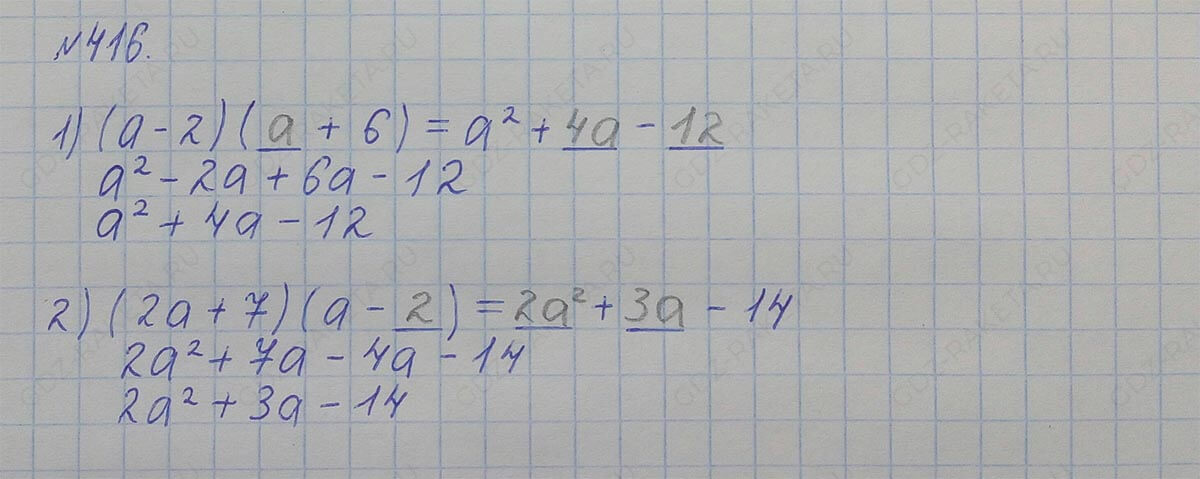 №416.
1) (a - 2)(a + 6) = a² + 4a - 12
a² - 2a + 6a - 12
a² + 4a - 12
2) (2a + 7)(a - 2) = 2a² + 3a - 14
2a² + 7a - 4a - 14
2a² + 3a - 14
GDZ-RAKETA.RU